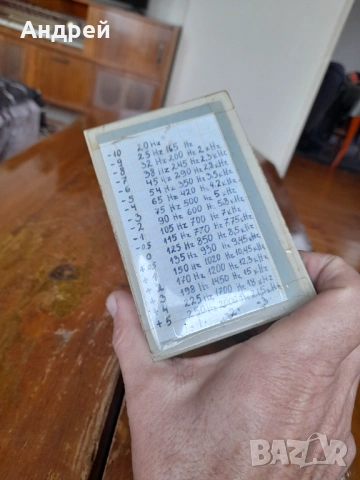 Андрей
-10 20 Hz
-9 25 Hz 165 Hz
-8 32 Hz 200 Hz 2 kHz
-7 38 Hz 245 Hz 2.3 kHz
-6 45 Hz 290 Hz 2.8 kHz
-5 54 Hz 350 Hz 3.5 kHz
-4 65 Hz 420 Hz 4.2 kHz
-3 75 Hz 500 Hz 5 kHz
-2 90 Hz 600 Hz 5.8 kHz
-1 105 Hz 700 Hz 7 kHz
-0.5 115 Hz 770 Hz 7.75 kHz
0 125 Hz 850 Hz 8.5 kHz
0.5 135 Hz 930 Hz 9.45 kHz
150 Hz 1020 Hz 10.45 kHz
170 Hz 1200 Hz 12.3 kHz
198 Hz 1450 Hz 15 kHz
225 Hz 1700 Hz 18 kHz
+5
BAZAR
bg